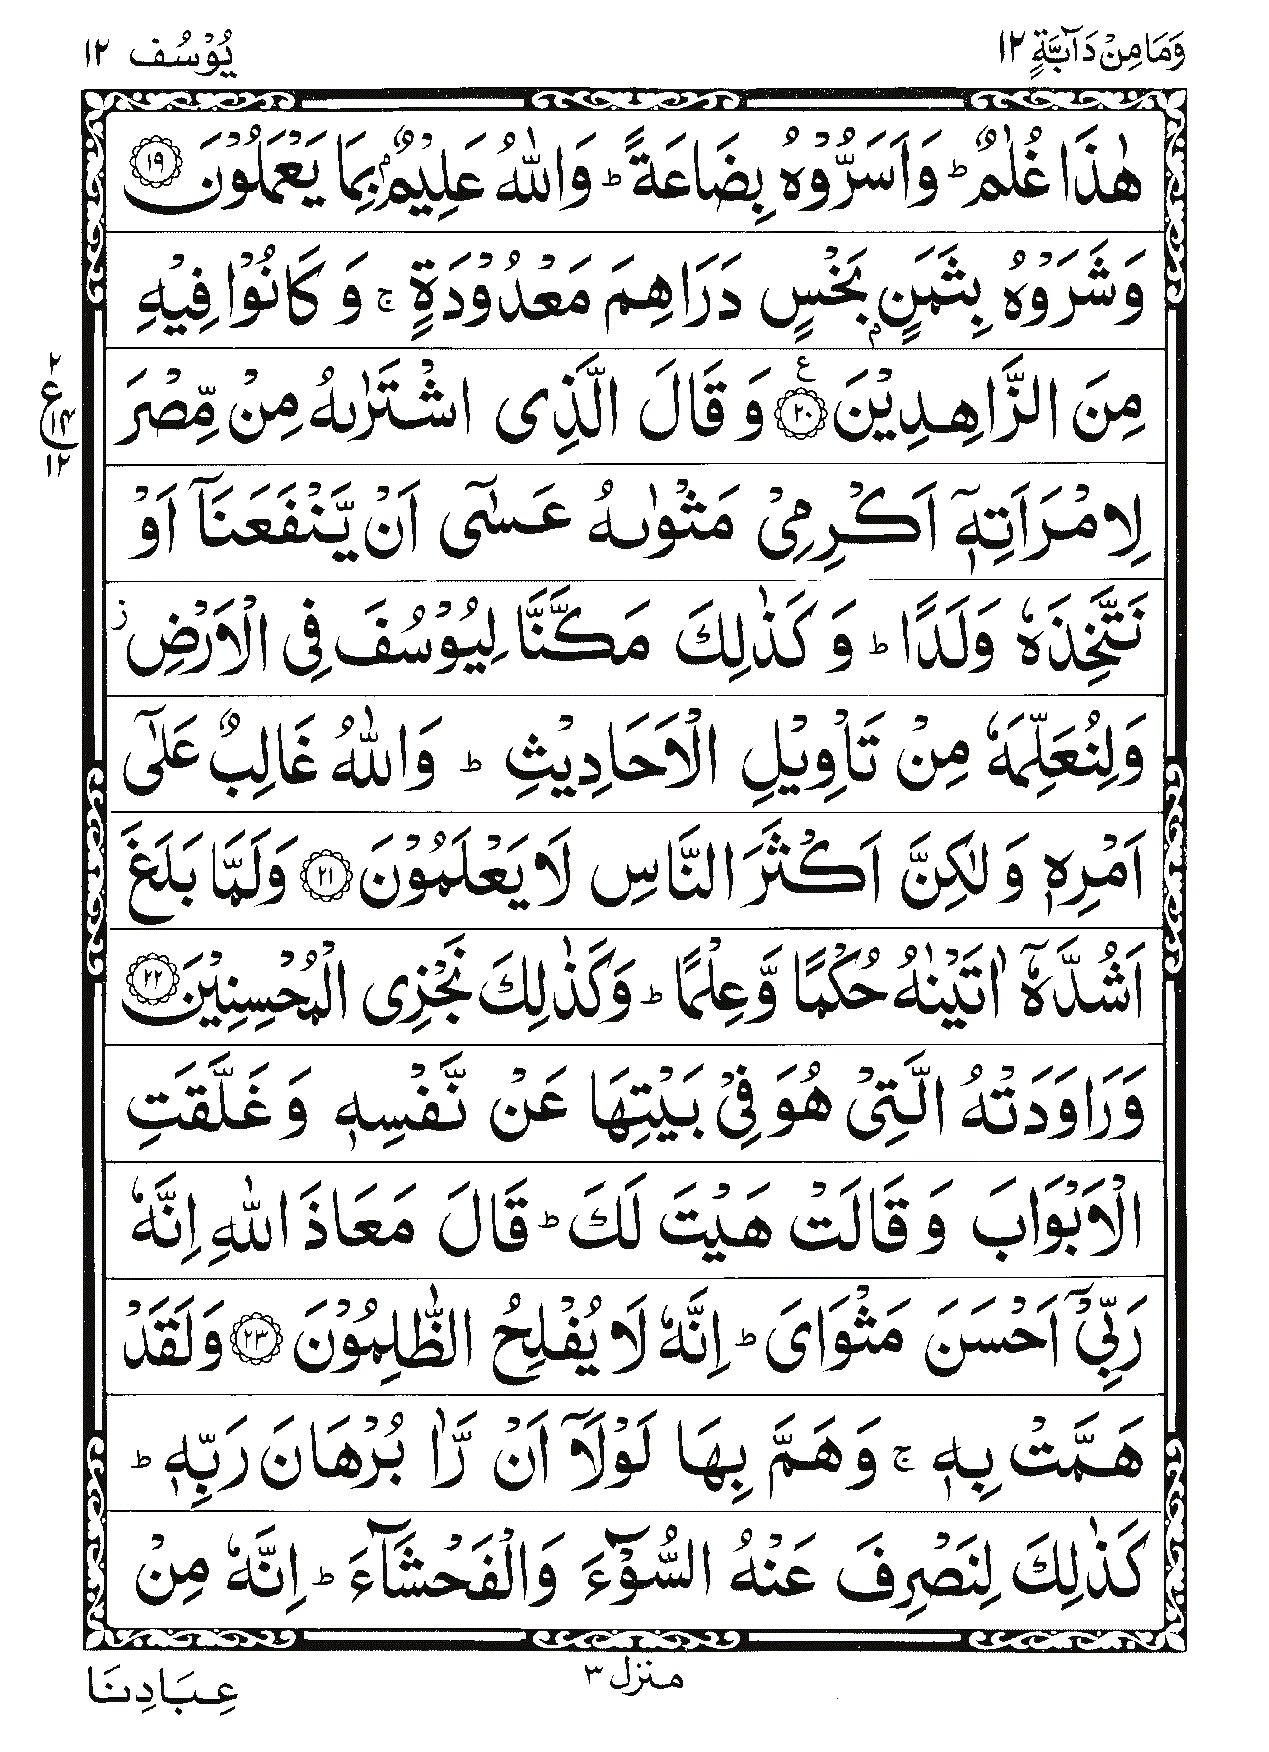 وَمَا مِنْ دَآبَّةٍ ١٢
يُوْسُف ١٢
هٰذَا غُلٰمٌ ؕ وَاَسَرُّوْهُ بِضَاعَةً ؕ وَاللّٰهُ عَلِيْمٌۢ بِمَا يَعْمَلُوْنَ ۝١٩
وَشَرَوْهُ بِثَمَنٍۢ بَخْسٍ دَرَاهِمَ مَعْدُوْدَةٍ ۚ وَ كَانُوْا فِيْهِ
مِنَ الزَّاهِدِيْنَ ۝٢٠ ع وَ قَالَ الَّذِى اشْتَرٰىهُ مِنْ مِّصْرَ
٢
ع
١٤
١٢
لِامْرَاَتِهٖۤ اَكْرِمِىْ مَثْوٰىهُ عَسٰۤى اَنْ يَّنْفَعَنَاۤ اَوْ
نَتَّخِذَهٗ وَلَدًا ؕ وَ كَذٰلِكَ مَكَّنَّا لِيُوْسُفَ فِى الْاَرْضِ ز
وَلِنُعَلِّمَهٗ مِنْ تَاْوِيْلِ الْاَحَادِيْثِ ؕ وَاللّٰهُ غَالِبٌ عَلٰٓى
اَمْرِهٖ وَ لٰكِنَّ اَكْثَرَ النَّاسِ لَا يَعْلَمُوْنَ ۝٢١ وَلَمَّا بَلَغَ
اَشُدَّهٗۤ اٰتَيْنٰهُ حُكْمًا وَّعِلْمًا ؕ وَكَذٰلِكَ نَجْزِى الْمُحْسِنِيْنَ ۝٢٢
وَرَاوَدَتْهُ الَّتِىْ هُوَ فِىْ بَيْتِهَا عَنْ نَّفْسِهٖ وَ غَلَّقَتِ
الْاَبْوَابَ وَ قَالَتْ هَيْتَ لَكَ ؕ قَالَ مَعَاذَ اللّٰهِ اِنَّهٗ
رَبِّىْۤ اَحْسَنَ مَثْوَاىَ ؕ اِنَّهٗ لَا يُفْلِحُ الظّٰلِمُوْنَ ۝٢٣ وَلَقَدْ
هَمَّتْ بِهٖ ۚ وَهَمَّ بِهَا لَوْلَاۤ اَنْ رَّاٰ بُرْهَانَ رَبِّهٖ ؕ
كَذٰلِكَ لِنَصْرِفَ عَنْهُ السُّوْٓءَ وَالْفَحْشَآءَ ؕ اِنَّهٗ مِنْ
منزل ٣
عِبَادِنَا